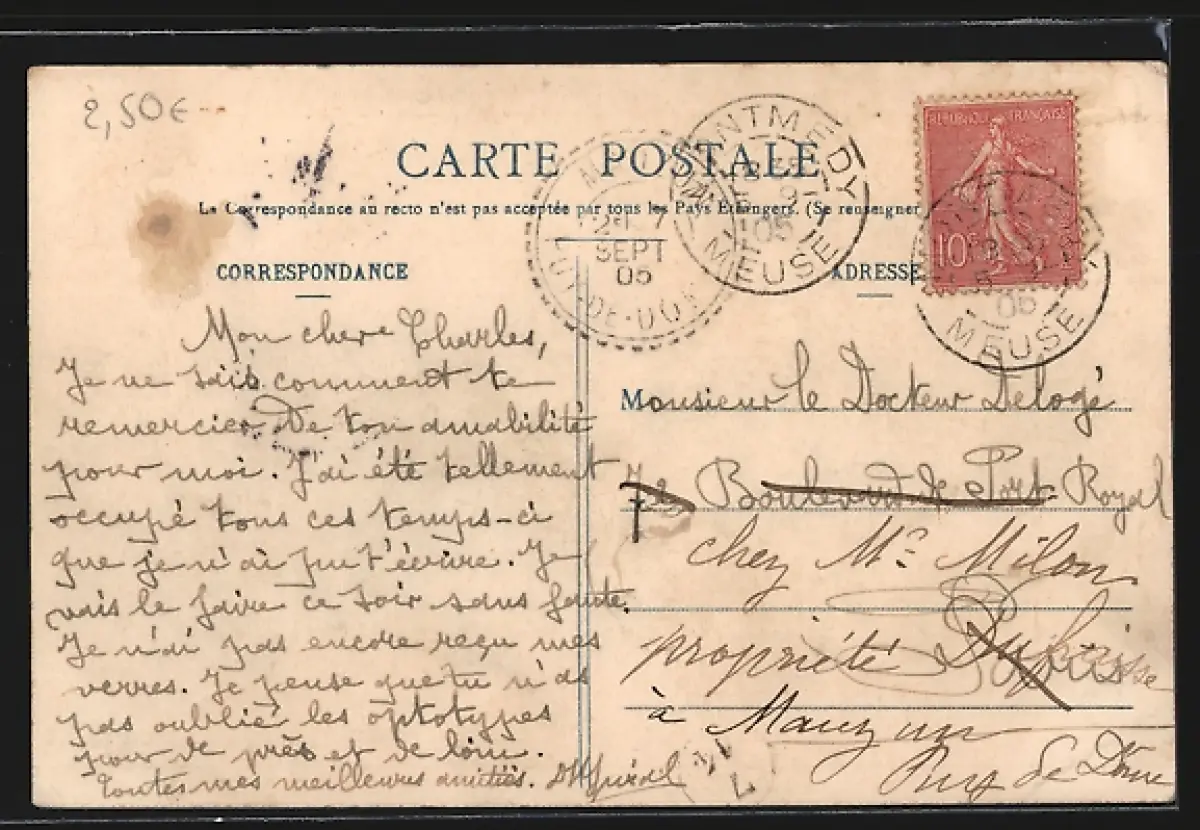 2,50€
CARTE POSTALE
La Correspondance au recto n'est pas acceptée par tous les Pays Étrangers. (Se renseigner
RÉPUBLIQUE FRANÇAISE
10c
MONTMÉDY
MEUSE
05
SEPT
05
PUY-DE-DÔME
MEUSE
05
CORRESPONDANCE
ADRESSE
Mon cher Charles,
Je ne sais comment te
remercier de ton amabilité
pour moi. J'ai été tellement
occupé tous ces temps-ci
que je n'ai pu t'écrire. Je
vais le faire ce soir sans faute.
Je n'ai pas encore reçu mes
verres. Je pense que tu n'as
pas oublié les optotypes
pour de près et de loin.
Toutes mes meilleures amitiés.
Monsieur le Docteur Delogé
72 Boulevard de Port Royal
chez Mr Milon
propriété
à Mauzun
Puy de Dôme